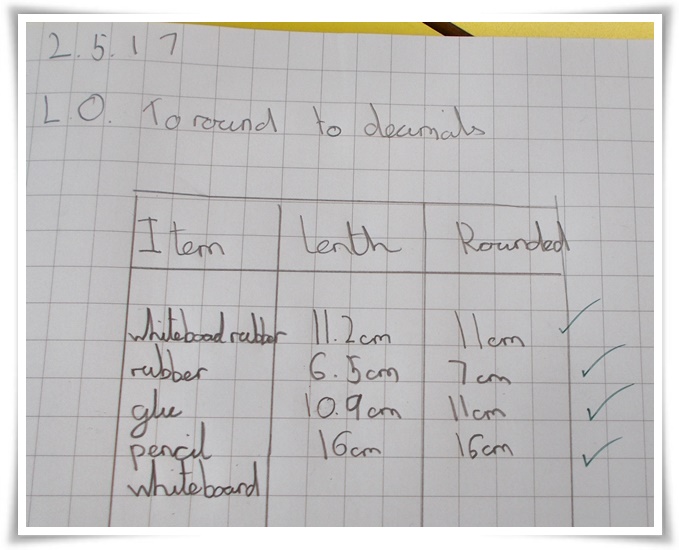 2.5.17
LO. To round to decimals
Item Lenth Rounded
whiteboad rubber 11.2cm 11cm
rubber 6.5cm 7cm
glue 10.9cm 11cm
pencil 16cm 16cm
whiteboard